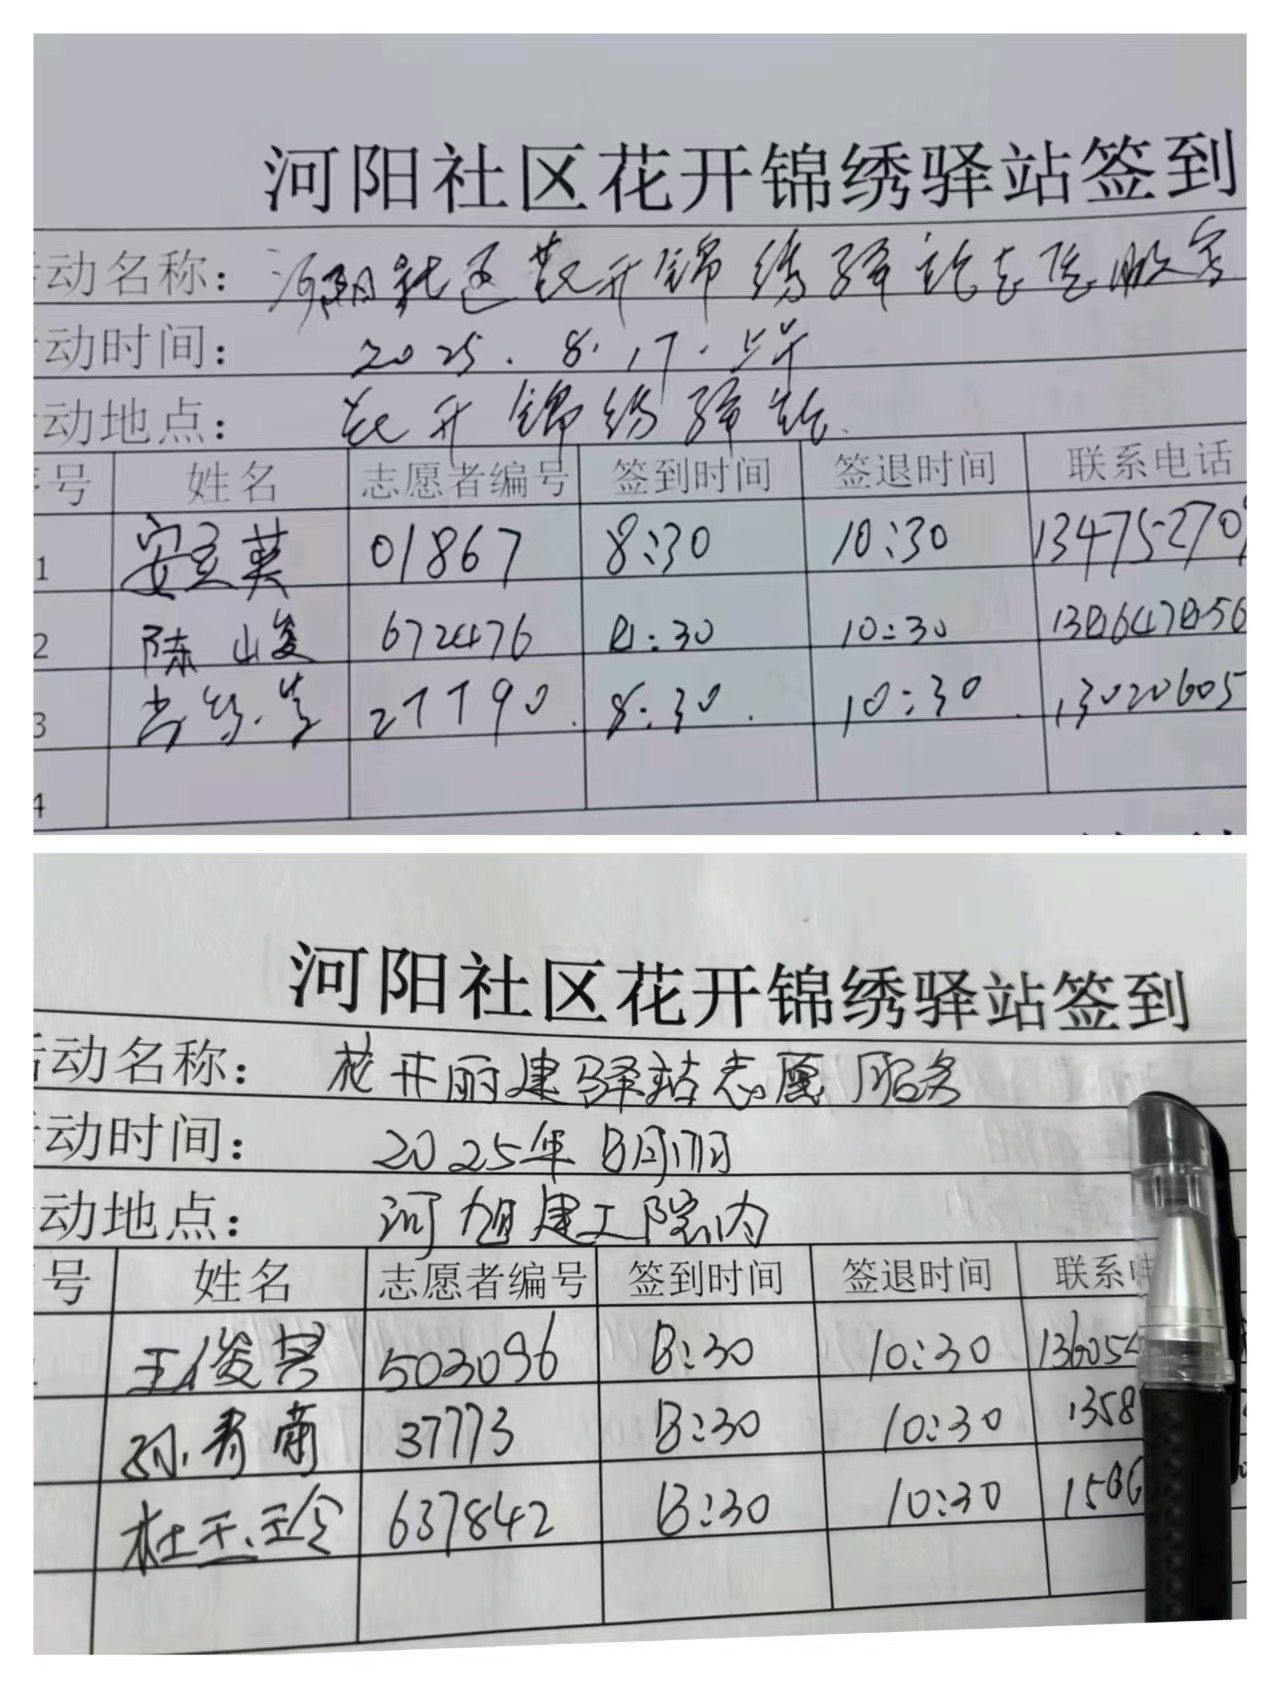 河阳社区花开锦绣驿站签到
动名称：河阳社区花开锦绣驿站志愿服务
动时间：2025.8.17.上午
动地点：花开锦绣驿站
号 姓名 志愿者编号 签到时间 签退时间 联系电话
1 安玉英 01867 8:30 10:30 13475270
2 陈峻 672476 8:30 10:30 1386478056
3 27790 8:30 10:30 13020605
4
河阳社区花开锦绣驿站签到
活动名称：花开丽建驿站志愿服务
动时间：2025年8月17日
动地点：河旭建工院内
号 姓名 志愿者编号 签到时间 签退时间 联系
王俊 503096 8:30 10:30 13605
孙秀 37773 8:30 10:30 1358
杜玉玲 637842 8:30 10:30 1586